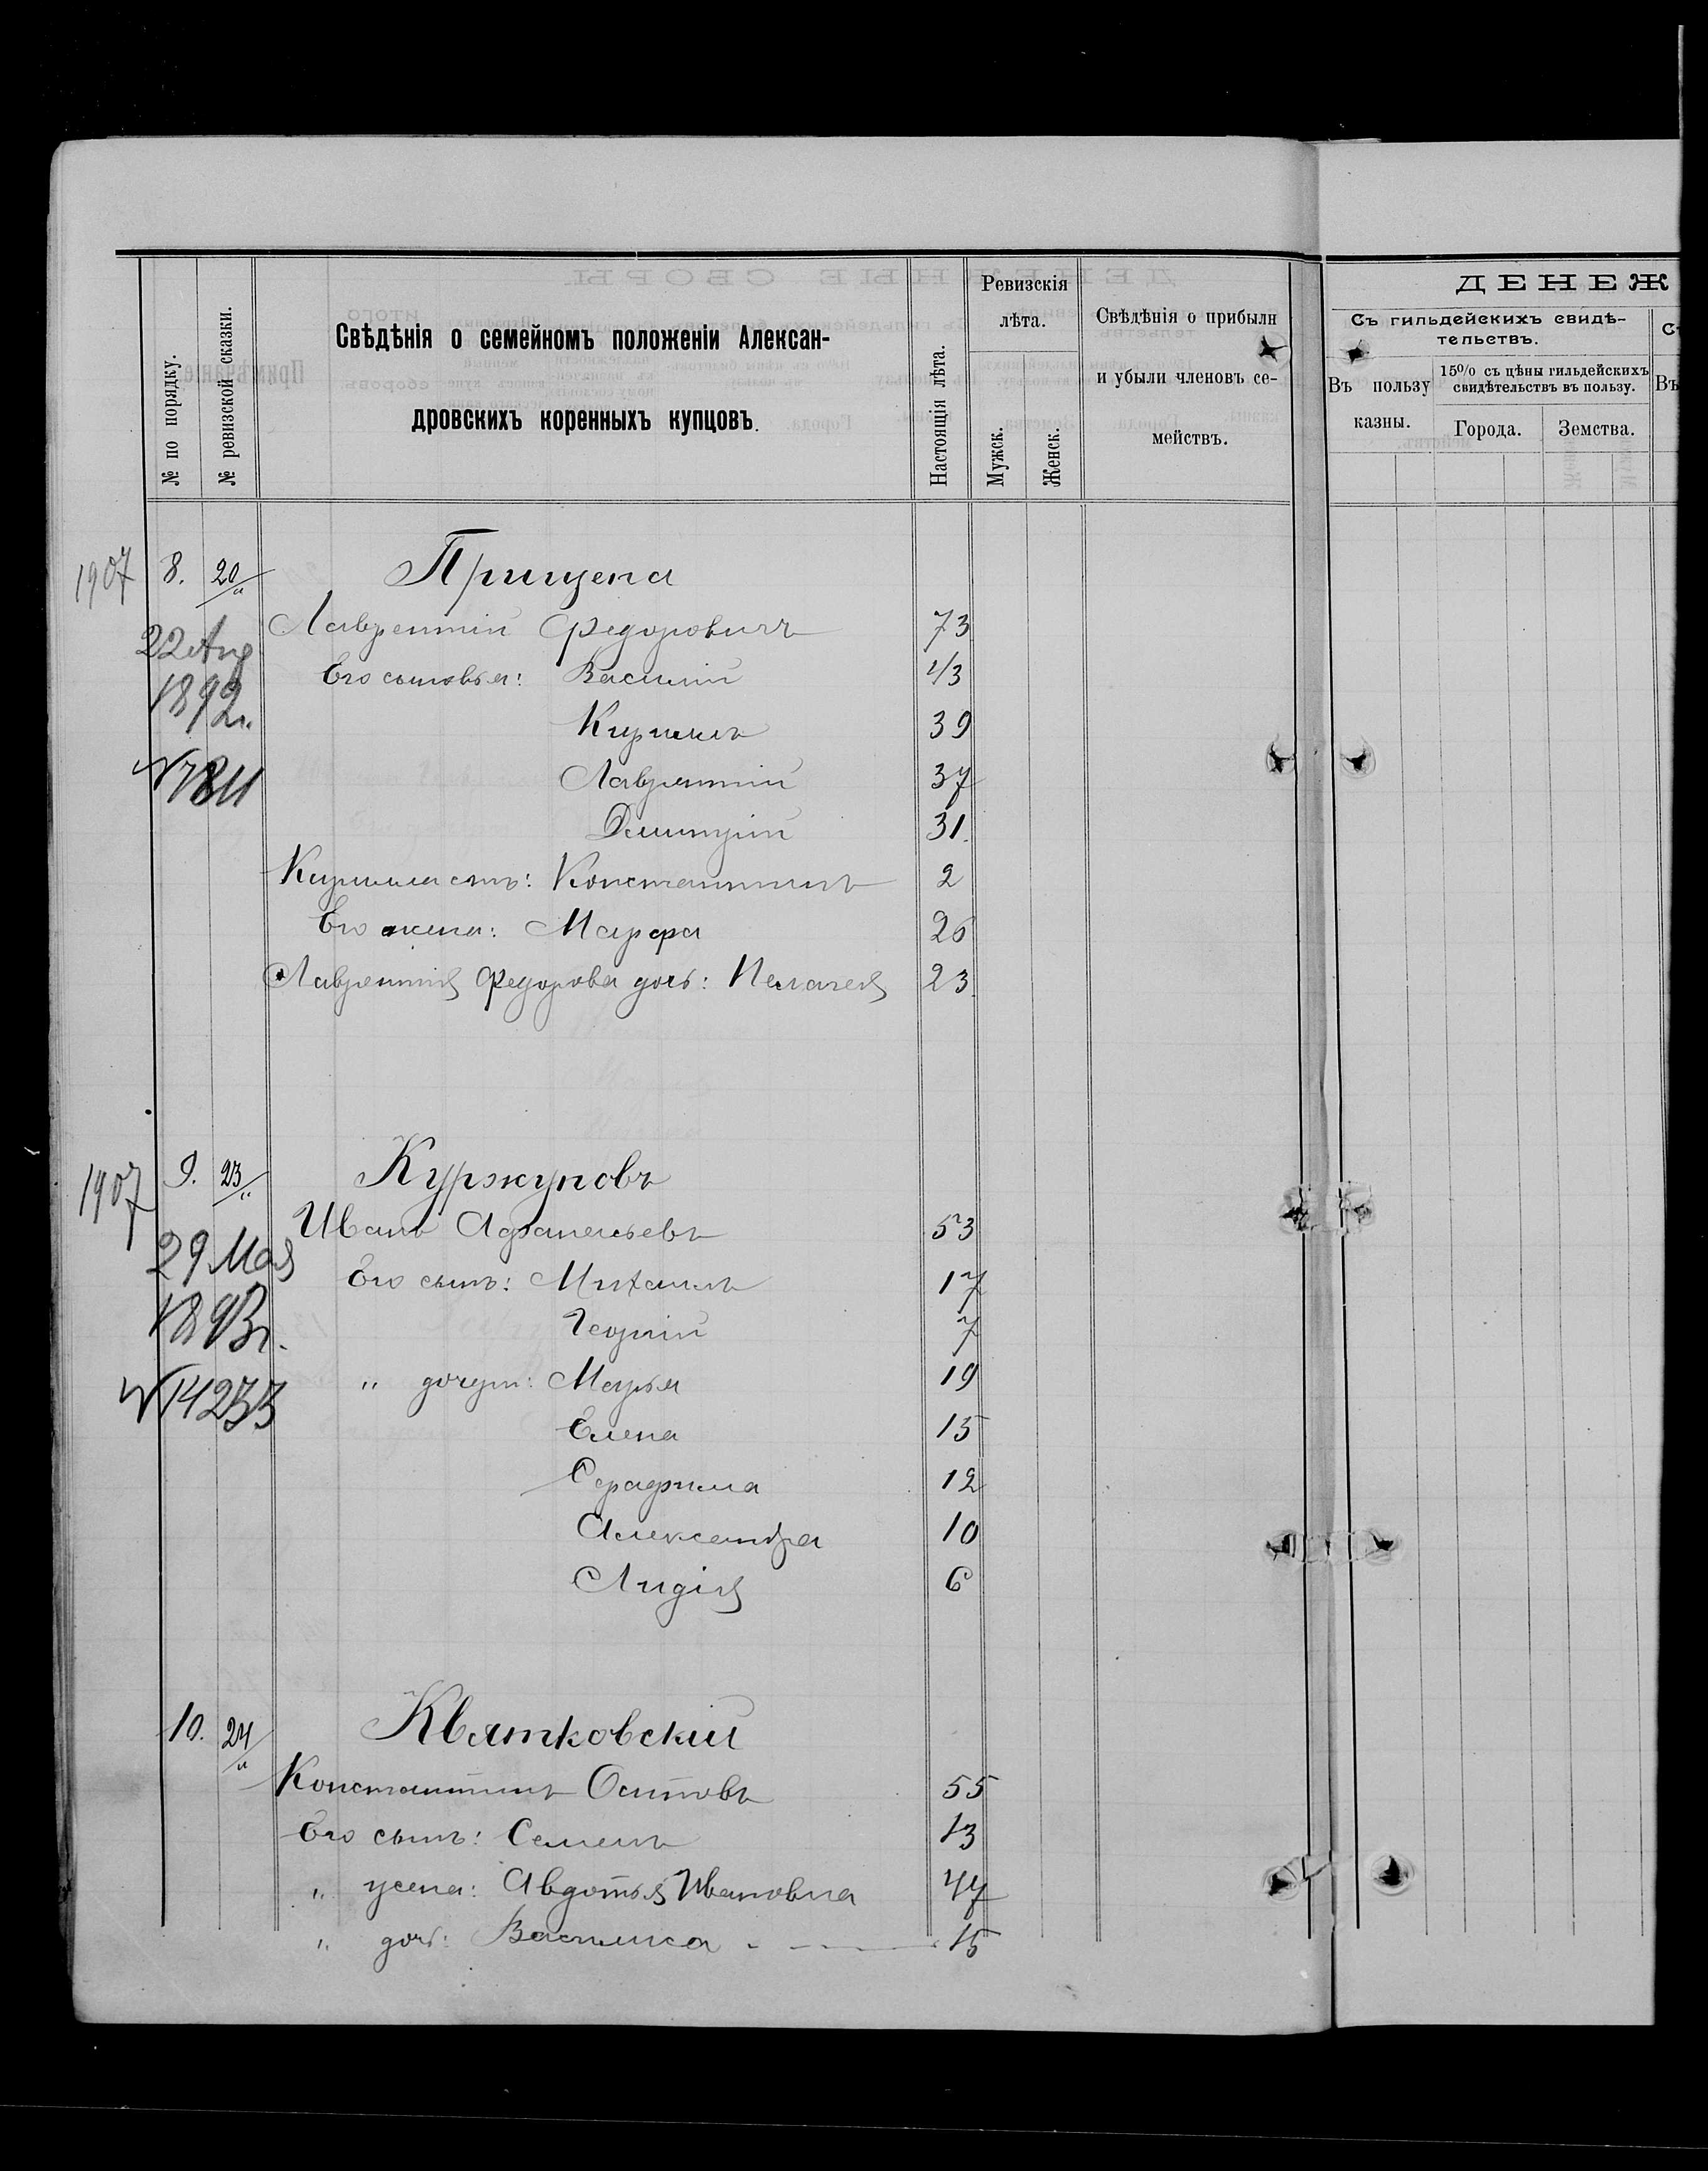 № по порядку.
№ ревизской сказки.
Свѣдѣнія о семейномъ положеніи Алексан-
дровскихъ коренныхъ купцовъ.
Настоящія лѣта.
Ревизскія
лѣта.
Мужск.
Женск.
Свѣдѣнія о прибыли
и убыли членовъ се-
мействъ.
ДЕНЕЖ
Съ гильдейскихъ свидѣ-
тельствъ.
Въ пользу
казны.
15% съ цѣны гильдейскихъ
свидѣтельствъ въ пользу.
Города.
Земства.
Въ
1907 8. 20 Прищепа
Лаврентій Федоровичъ 73
22 Апр
Его сыновья: Василій 43
1892
Кирилъ 39
Лаврентій 37
№ 7811
Дмитрій 31.
Кирилла сынъ: Константинъ 2
Его жена: Марфа 26
Лаврентія Федорова дочь: Пелагея 23
1907 9. 23 Куржуповъ
Иванъ Афанасьевъ 53
29 Мая
Его сынъ: Михаилъ 17
1893г.
Георгій 7
№ 14233
" дочери: Марья 19
Елена 15
Серафима 12
Александра 10
Лидія 6
10. 24 Квятковскій
Константинъ Осиповъ 55
Его сынъ: Семенъ 13
" жена: Авдотья Ивановна 47
" дочь: Василиса 15